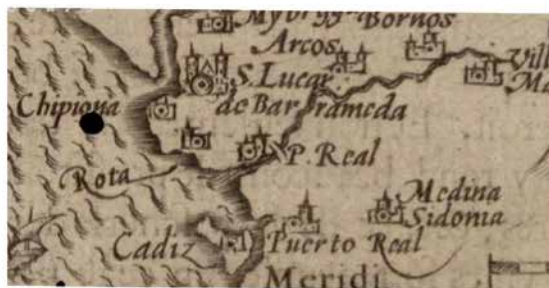 Bornos
Arcos
S. Lucar
de Barrameda
Chipiona
P. Real
Rota
Medina
Sidonia
Cadiz
Puerto Real
Meridi